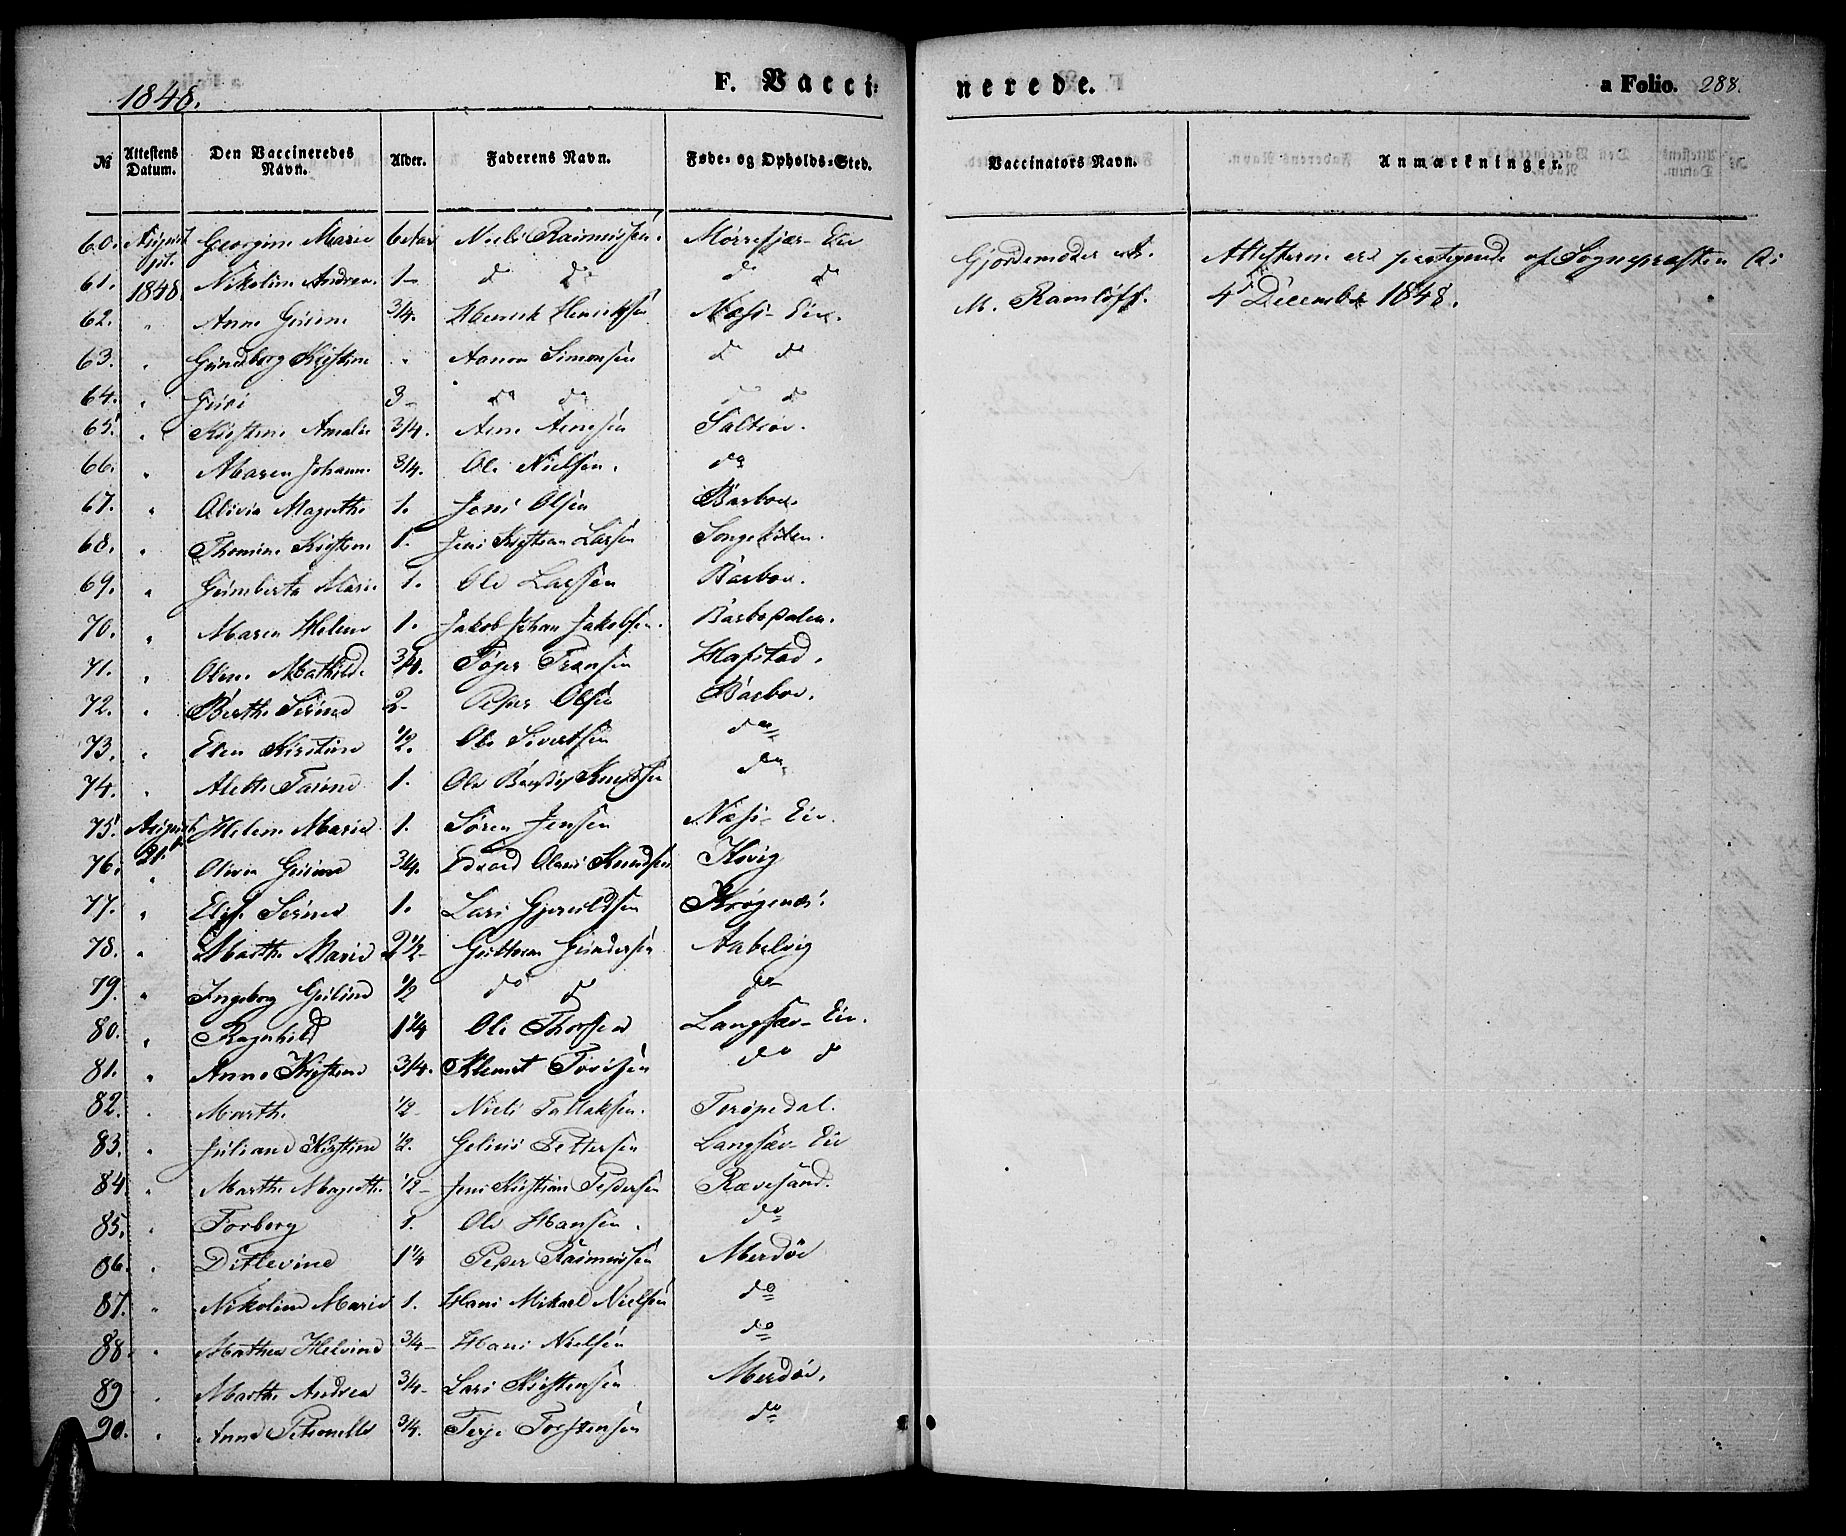 1848. F. Vacci- nerede. a Folio. 288.
№ Attestens Datum. Den Vaccineredes Navn. Alder. Faderens Navn. Føde- og Opholds-Sted. Vaccinators Navn. Anmærkninger.
60. August Georgine Marie Niels Rasmussen. Gjordemoder
61. 1848 Nikoline Andrea. 1- do do do do M. Ramløff. 4 December 1848.
62. " Anne 3/4. Henrik Henriksen Næs-
63. " Gundborg Kirstine " Aanon Simonsen do do
64. " 3- do do do
65. " Kirstine Amalie 3/4. Arne Arnesen Saltrøe.
66. " Maren Johanne 3/4. Ole Nielsen. do
67. " Olivia Magrethe 1. Jens Olsen Barboe.
68. " Thomine Kirstine 1. Jens Kristian Larsen Songekilen.
69. " Gumberta Marie 1. Ole Larsen Barboe.
70. " Maren Helene 1. Jakob Johan Jakobsen. Barbodalen.
71. " Olene Mathilde 3/4. Hafstad.
72. " Berthe Serine 2- Peder Olsen Barboe.
73. " Elen Kirstine 1/2. Ole Sivertsen do
74. " 1. Ole Knudsen do
75. August Helene Marie 1. Søren Jensen Næs-
76. 21. Olivia 3/4. Edvard Olaus Knudsen Kovig
77. " Serine 1. Lars Gjeruldsen Krøgenæs.
78. " Marthe Marie 2 1/2- Guttorm Gundersen Aabelvig
79. " Ingeborg 1/2 do do do
80. " Ragnhild 1 1/4 Ole Thorsen Langsæv-
81. " Anne Kirstine 3/4. Klemet do do
82. " Marthe 1/2- Niels Tallaksen. Torøpedal.
83. " Juliane Kirstine 1/2. Gelius Pettersen Langsæv-
84. " Marthe Magrethe 1/2- Jens Kristian Pedersen Rævesand.
85. " Torborg 1. Ole Hansen. do
86. " Ditlevine 1 1/4 Peder Rasmussen Merdøe
87. " Nikoline Marie 1. Hans Mikael Nielsen do
88. " Mathea Helvine 3/4- Hans Nielsen do
89 " Marthe Andrea 3/4- Lars Kristensen Merdøe.
90. " Anne Petronelle 3/4. Terje Torstensen do